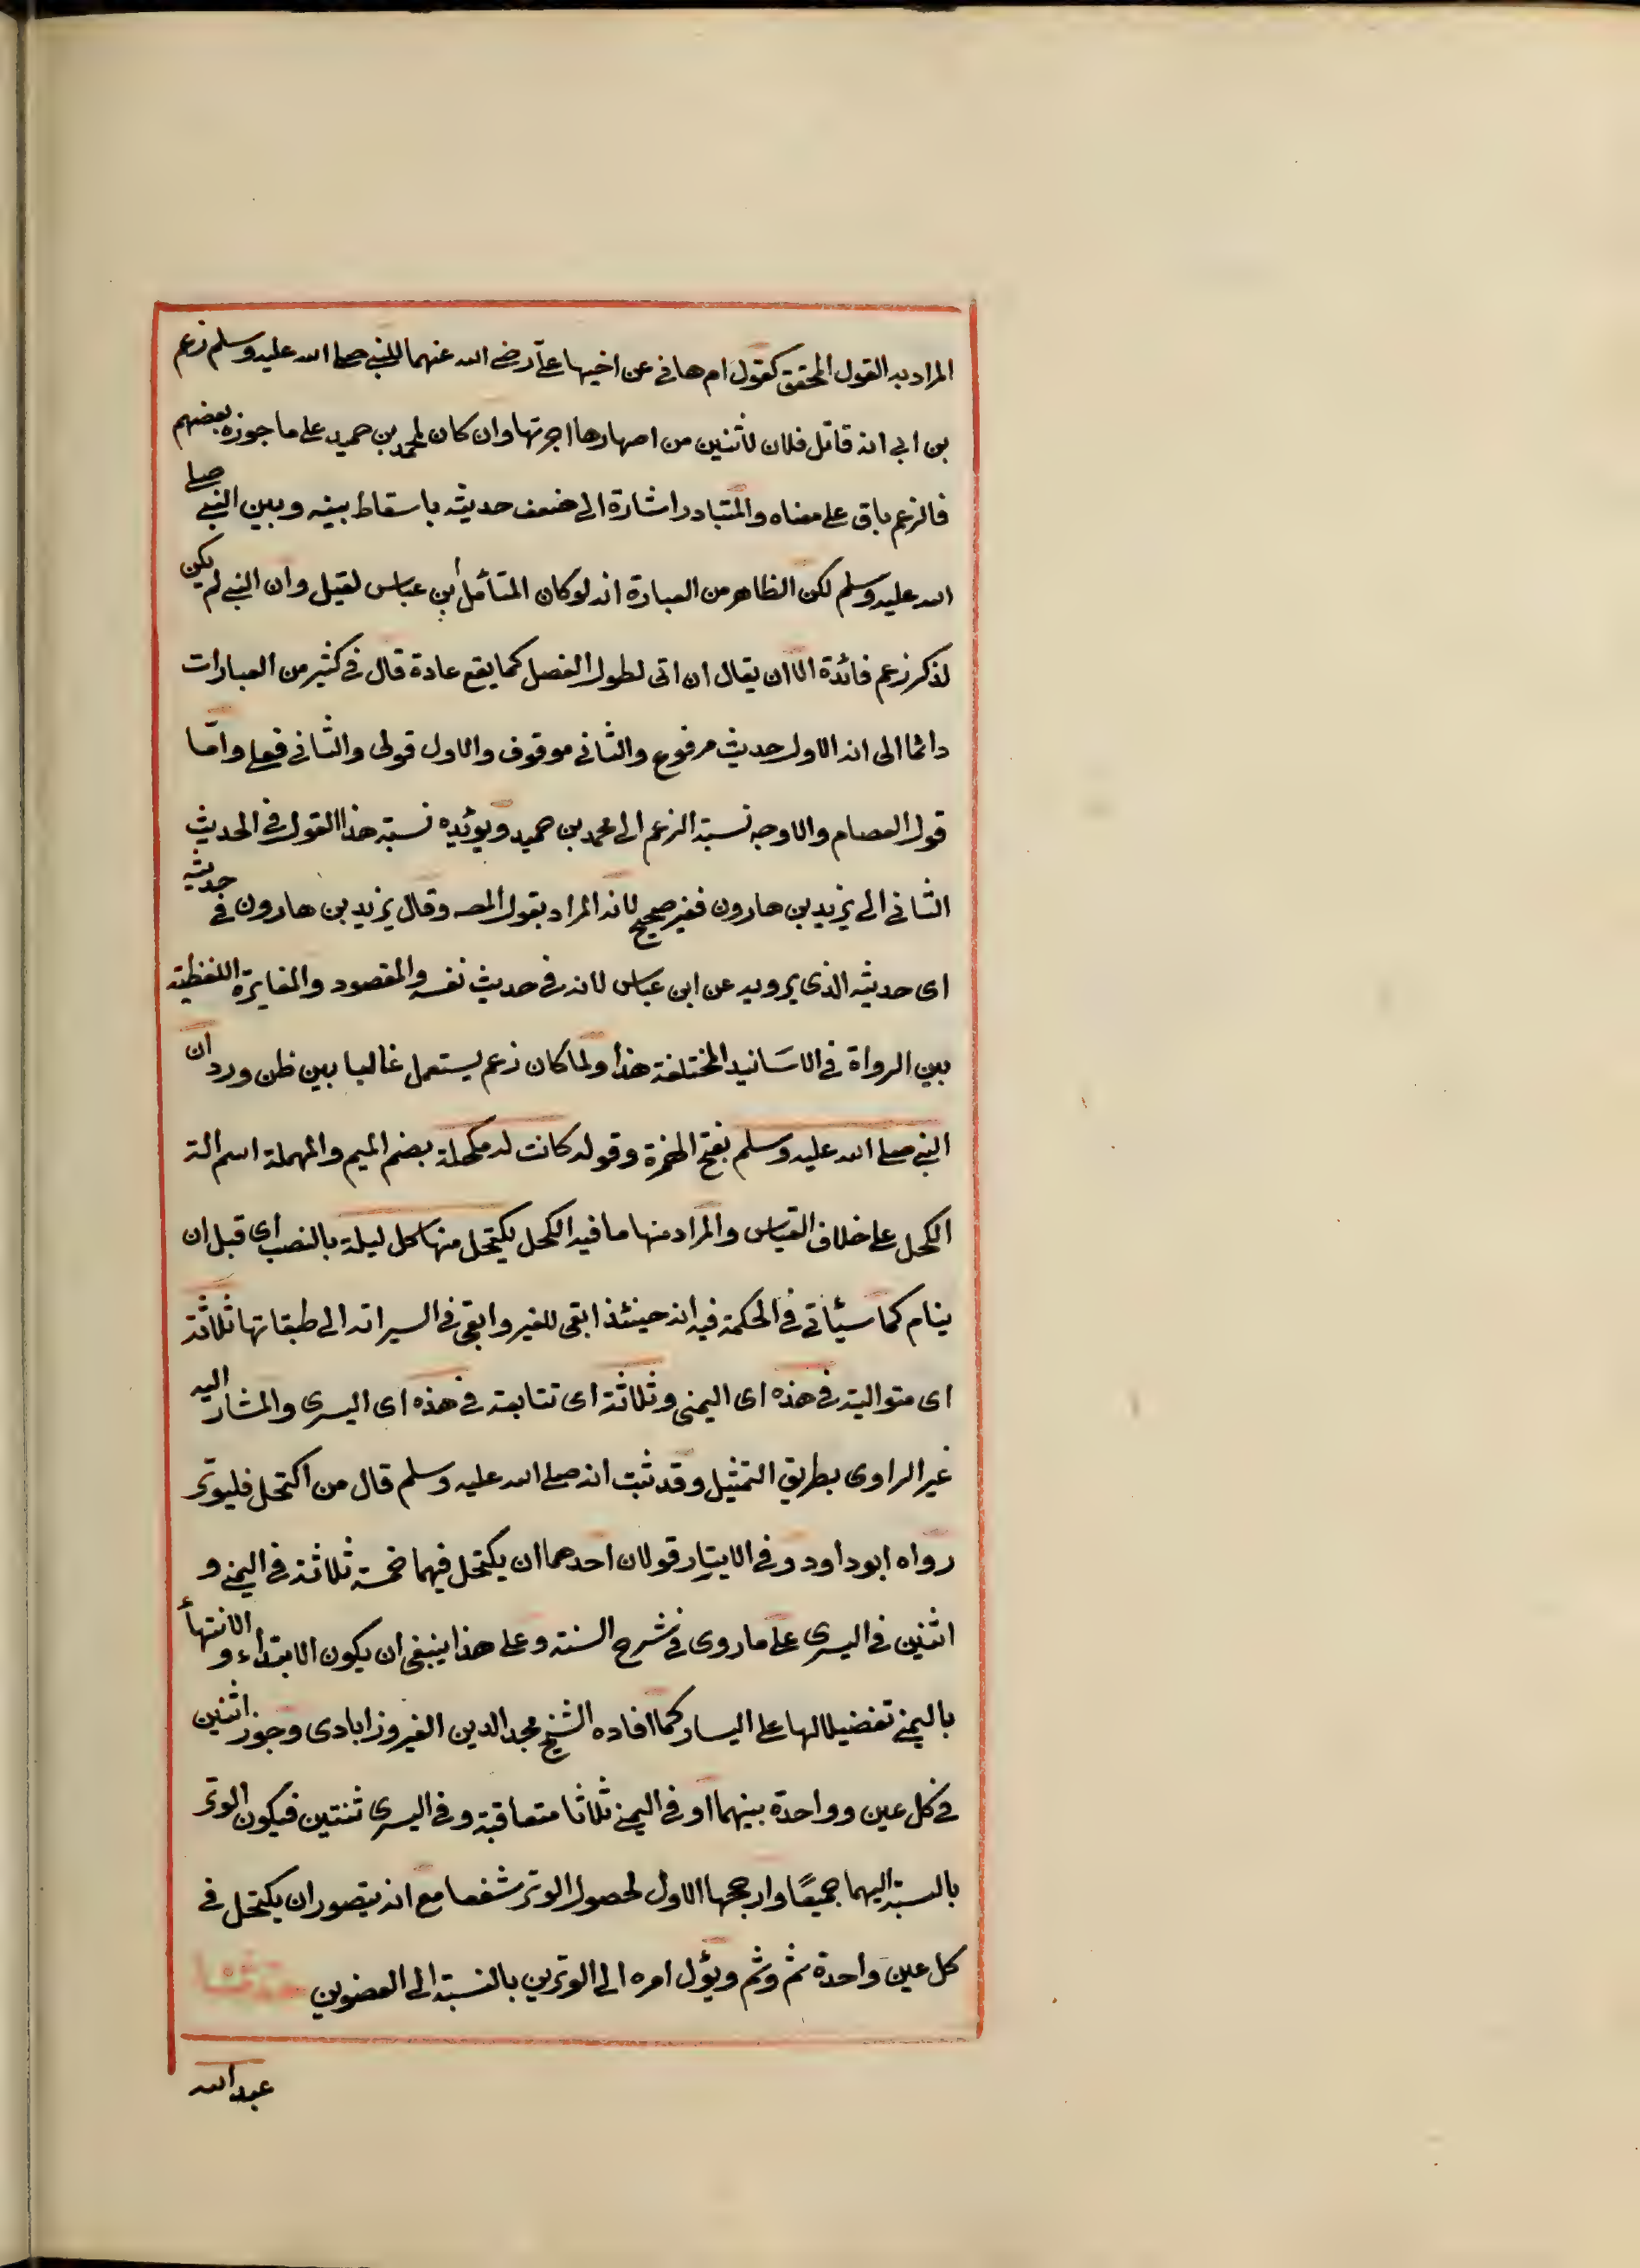 المراد به القول المحقق كقول ام هانى عن اخيها على رضى الله عنهما للنبى صلى الله عليه وسلم زعم
بن ابى انه قاتل فلان لاثنين من اصهارها اجرتها وان كان لمحمد بن حميد على ما جوزه بعضهم
فالزعم باق على معناه والمتبادر اشارة الى ضعف حديثه باسقاط بينه وبين النبى صلى
الله عليه وسلم لكن الظاهر من العبارة انه لو كان المتأمل ابن عباس لقيل وان النبى لم يكن
لذكر زعم فائدة الا ان يقال ان اتى لطول الفصل كما يقع عادة قال فى كثير من العبارات
دائما الى انه الاول حديث مرفوع والثانى موقوف والاول قولى والثانى فعلى وامّا
قول العصام والاوجه نسبة الزعم الى محمد بن حميد ويؤيده نسبة هذا القول فى الحديث
الثانى الى يزيد بن هارون فغير صحيح لانه المراد بقول المصـ وقال يزيد بن هارون فى حديثه
اى حديثه الذى يرويه عن ابن عباس لانه فى حديث نفسه والمقصود والمغايرة اللفظية
بين الرواة فى الاسَانيد المختلفة هذا ولما كان زعم يستعمل غالبا بين ظن ورد ان
النبى صلى الله عليه وسلم بفتح الهمزة وقوله كانت له مكحلة بضم الميم والمهملة اسم الة
الكحل على خلاف القياس والمراد منها ما فيه الكحل يكتحل منها كل ليلة بالنصب اى قبل ان
ينام كما سيئاتى فى الحكمة فيه انه حينئذ ابقى للغير وابقى فى السيراته الى طبقاتها ثلاثة
اى متوالية فى هذه اى اليمنى وثلاثة اى تتابعة فى هذه اى اليسرى والمشار اليه
غير الراوى بطريق التمثيل وقد ثبت انه صلى الله عليه وسلم قال من اكتحل فليوتر
رواه ابو داود وفى الايتار قولان احدهما ان يكتحل فيهما خمسة ثلاثة فى اليمنى و
اثنين فى اليسرى على ما روى فى شرح السنة وعلى هذا ينبغى ان يكون الابتداء والانتهاء
باليمنى تفضيلا لها على اليسار كما افاده الشيخ مجد الدين الفيروزابادى وجوز اثنين
فى كل عين وواحدة بينهما او فى اليمنى ثلاثا متعاقبة وفى اليسرى ثنتين فيكون الوتر
بالنسبة اليهما جميعًا وارجحها الاول لحصول الوتر شفعا مع انه يتصور ان يكتحل فى
كل عين واحدة ثم وثم ويؤل امره الى الوترين بالنسبة الى العضوين حدثنا
عبد الله